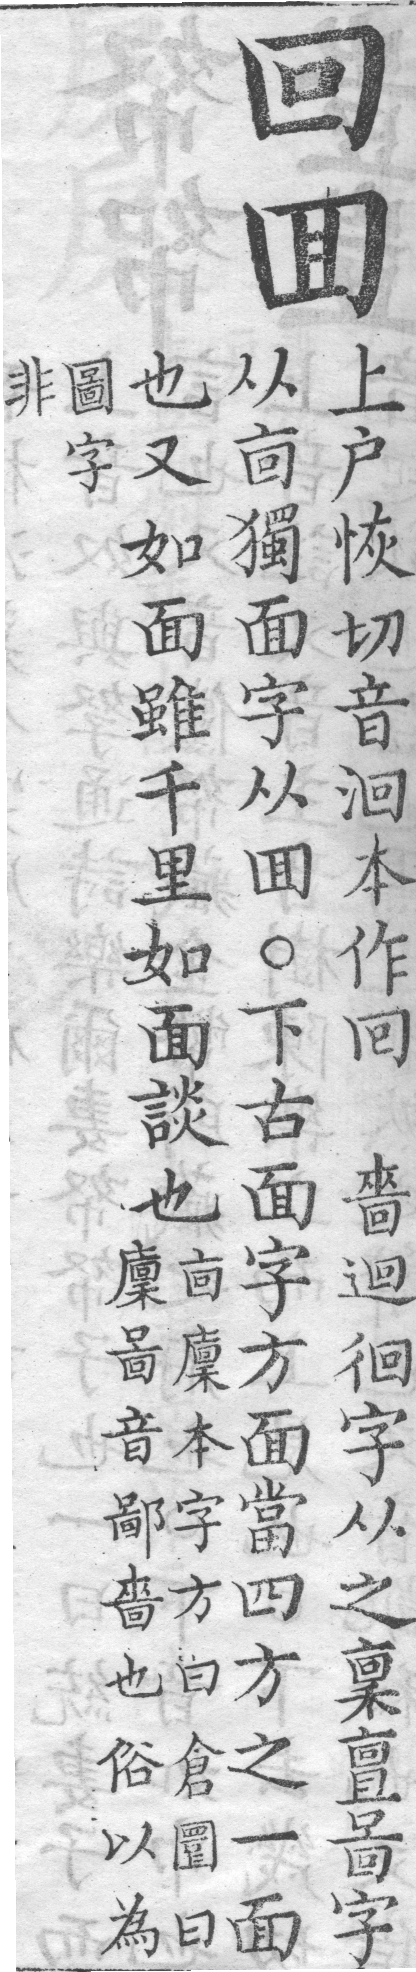 回囬
上户恢切音洄本作回 嗇迴徊字从之稟亶啚字
从㐭獨面字从囬○下古面字方面當四方之一面
也又如面雖千里如面談也㐭廩本字方曰倉圓曰
廩啚音鄙嗇也俗以為
圖字
非